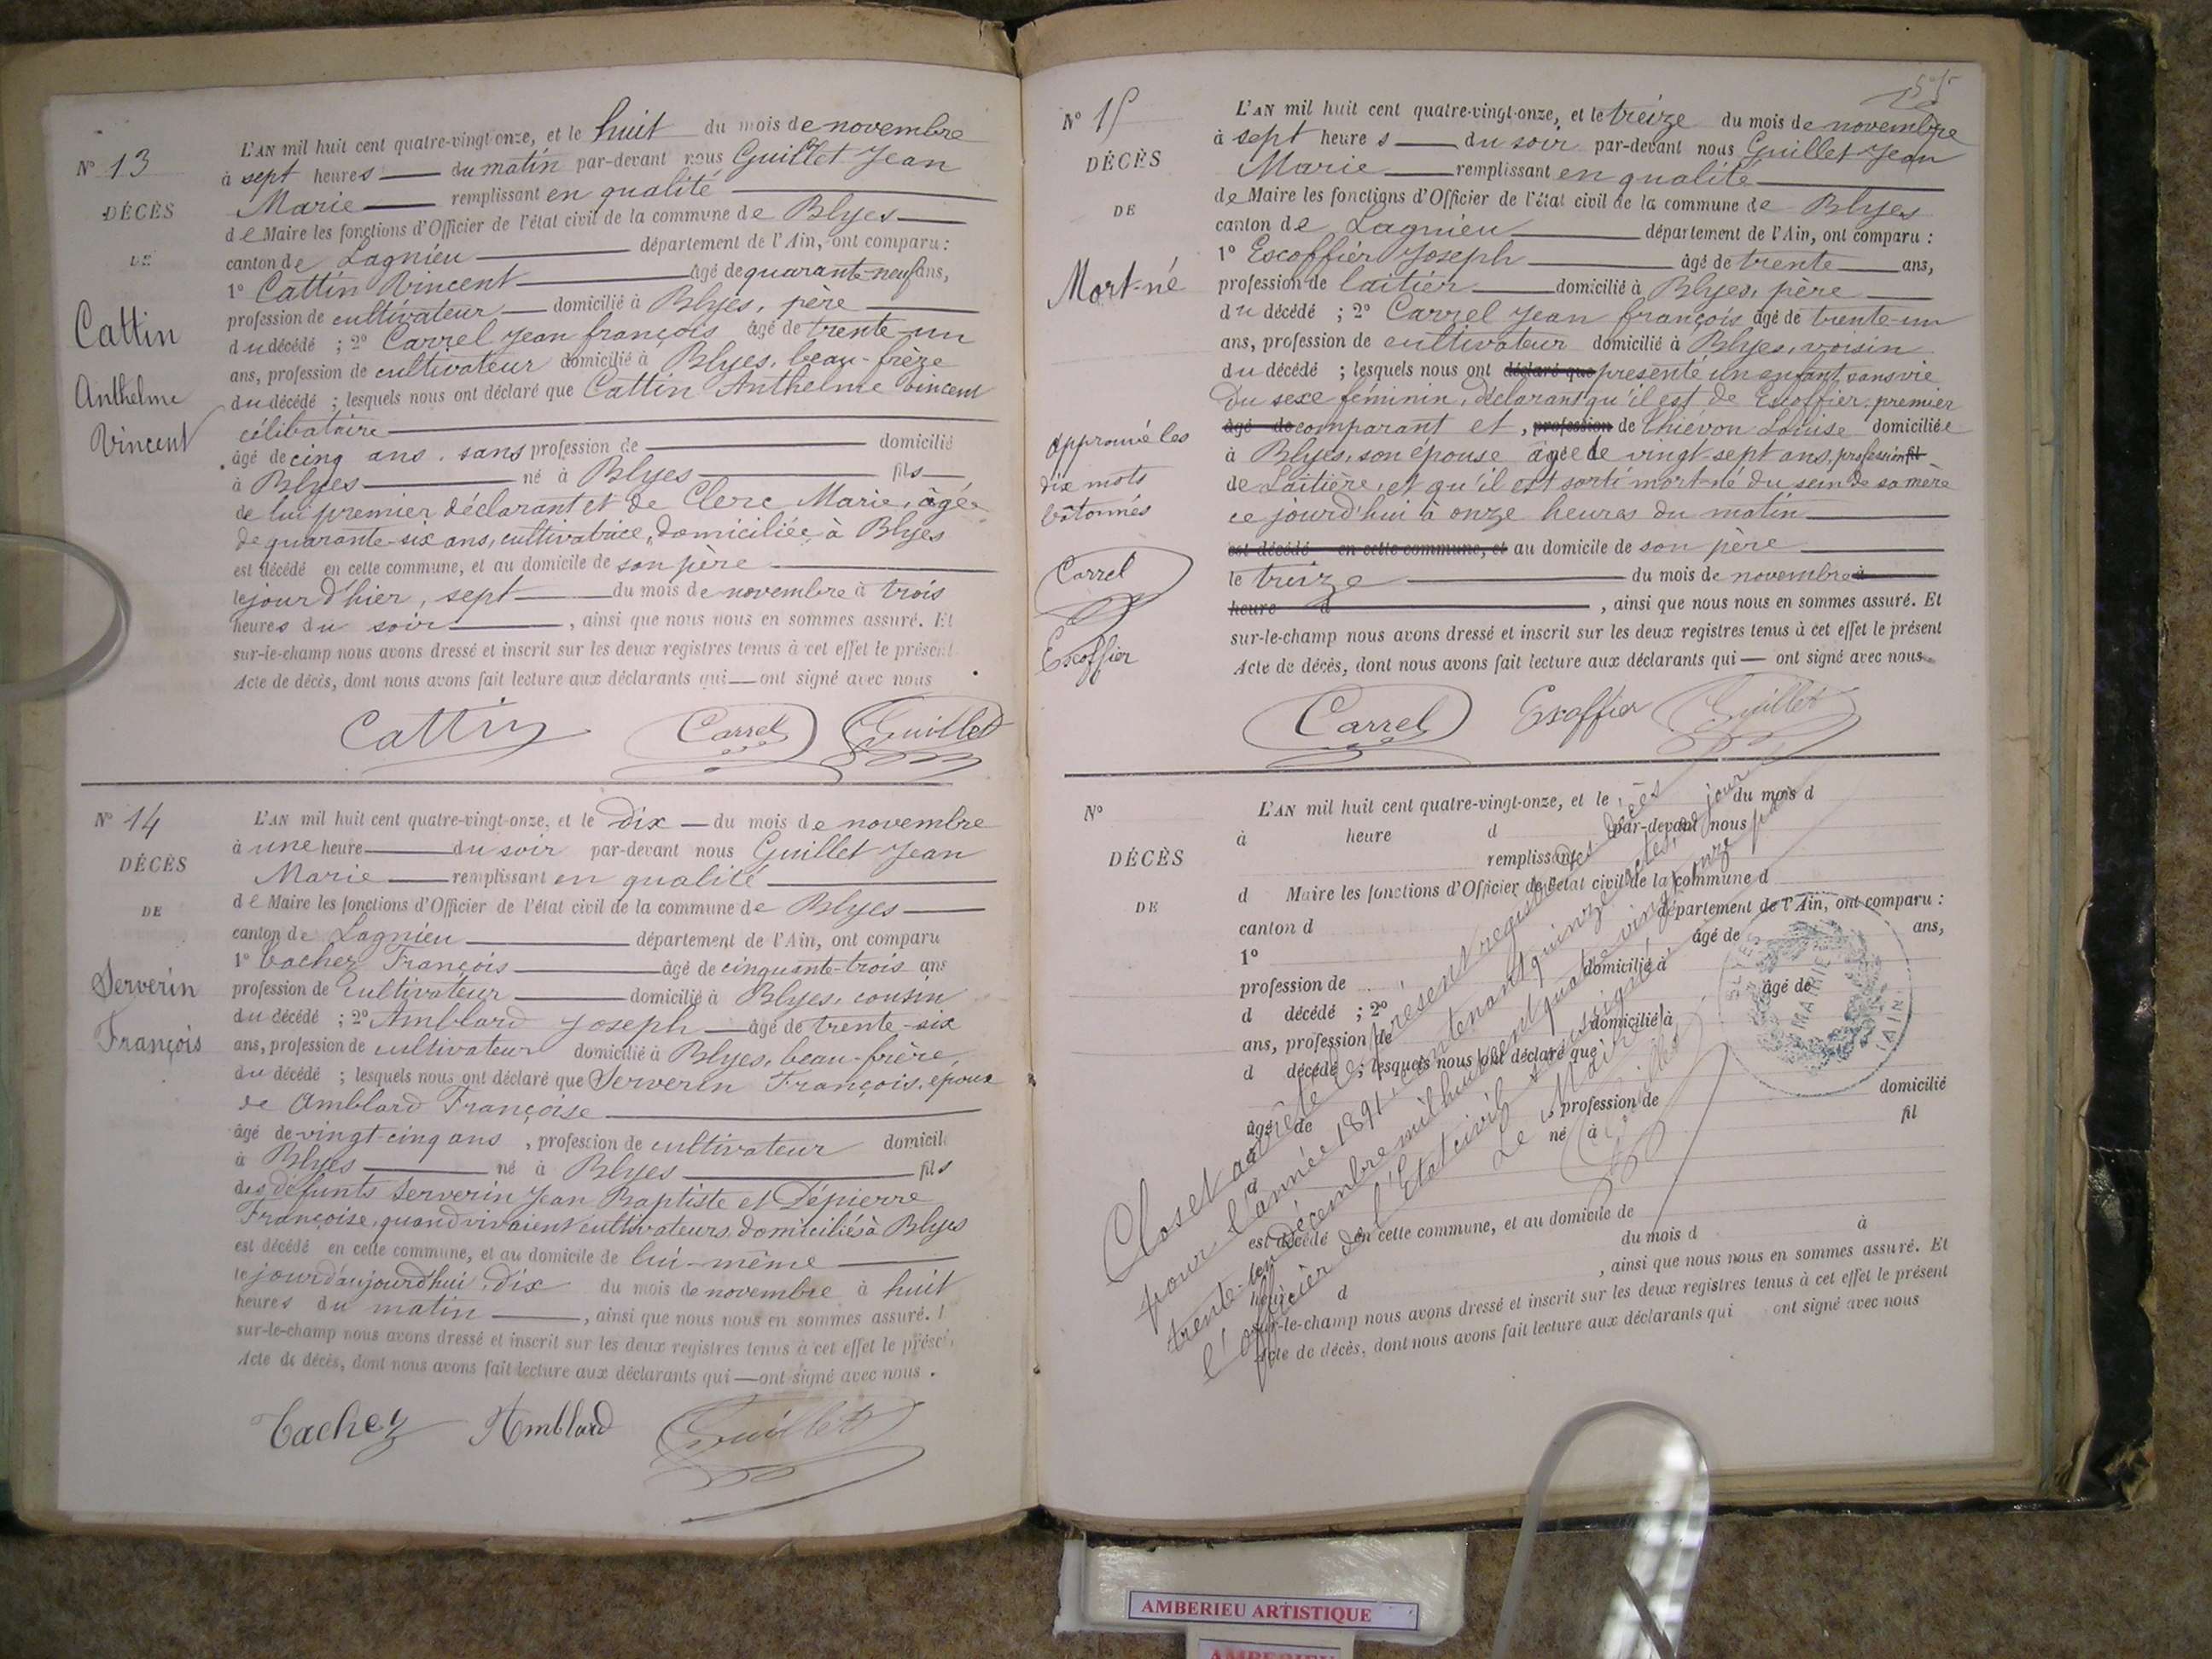 N° 13
DÉCÈS
DE
Cattin
Anthelme
Vincent
L'AN mil huit cent quatre-vingt-onze, et le huit du mois de novembre
à sept heures du matin par-devant nous Guillet Jean
Marie remplissant en qualité
de Maire les fonctions d'Officier de l'état civil de la commune de Blyes
canton de Lagnieu département de l'Ain, ont comparu :
1° Cattin Vincent âgé de quarante-neuf ans,
profession de cultivateur domicilié à Blyes, père
du décédé ; 2° Carrel Jean françois âgé de trente-un
ans, profession de cultivateur domicilié à Blyes, beau-frère
du décédé ; lesquels nous ont déclaré que Cattin Anthelme Vincent
célibataire
âgé de cinq ans, sans profession de domicilié
à Blyes né à Blyes fils
de lui premier déclarant et de Clerc Marie, âgée
de quarante-six ans, cultivatrice, domiciliée à Blyes
est décédé en cette commune, et au domicile de son père
le jour d'hier, sept du mois de novembre à trois
heures du soir, ainsi que nous nous en sommes assuré. Et
sur-le-champ nous avons dressé et inscrit sur les deux registres tenus à cet effet le présent
Acte de décès, dont nous avons fait lecture aux déclarants qui ont signé avec nous
Cattin Carrel Guillet
N° 14
DÉCÈS
DE
Serverin
François
L'AN mil huit cent quatre-vingt-onze, et le dix du mois de novembre
à une heure du soir par-devant nous Guillet Jean
Marie remplissant en qualité
de Maire les fonctions d'Officier de l'état civil de la commune de Blyes
canton de Lagnieu département de l'Ain, ont comparu
1° Vachez François âgé de cinquante-trois ans
profession de cultivateur domicilié à Blyes, cousin
du décédé ; 2° Amblard Joseph âgé de trente-six
ans, profession de cultivateur domicilié à Blyes, beau-frère,
du décédé ; lesquels nous ont déclaré que Serverin François, époux
de Amblard Françoise
âgé de vingt-cinq ans, profession de cultivateur domicil
à Blyes né à Blyes fils
des défunts Serverin Jean Baptiste et Dépierre
Françoise, quand vivaient cultivateurs, domiciliés à Blyes
est décédé en cette commune, et au domicile de lui-même
le jour d'aujourd'hui, dix du mois de novembre à huit
heures du matin, ainsi que nous nous en sommes assuré.
sur-le-champ nous avons dressé et inscrit sur les deux registres tenus à cet effet le présen
Acte de décès, dont nous avons fait lecture aux déclarants qui ont signé avec nous.
Vachez Amblard Guillet
N° 15
DÉCÈS
DE
Mort-né
Approuvé les
dix mots
bâtonnés
Carrel
Escoffier
L'AN mil huit cent quatre-vingt-onze, et le treize du mois de novembre
à sept heures du soir par-devant nous Guillet Jean
Marie remplissant en qualité
de Maire les fonctions d'Officier de l'état civil de la commune de Blyes
canton de Lagnieu département de l'Ain, ont comparu :
1° Escoffier Joseph âgé de trente ans,
profession de laitier domicilié à Blyes, père
du décédé ; 2° Carrel Jean françois âgé de trente-un
ans, profession de cultivateur domicilié à Blyes, voisin
du décédé ; lesquels nous ont déclaré que présenté un enfant sans vie
du sexe féminin, déclarant qu'il est de Escoffier, premier
âgé de comparant et, profession de Thiévon Louise domiciliée
à Blyes, son épouse âgée de vingt-sept ans, profession fil
de Laitière, et qu'il est sorti mort-né du sein de sa mère
ce jourd'hui à onze heures du matin
est décédé en cette commune, et au domicile de son père
le treize du mois de novembre à
heure d, ainsi que nous nous en sommes assuré. Et
sur-le-champ nous avons dressé et inscrit sur les deux registres tenus à cet effet le présent
Acte de décès, dont nous avons fait lecture aux déclarants qui ont signé avec nous
Carrel Escoffier Guillet
N°
DÉCÈS
DE
L'AN mil huit cent quatre-vingt-onze, et le du mois d
à heure d par-devant nous
remplissant
d Maire les fonctions d'Officier de l'état civil de la commune d
canton d département de l'Ain, ont comparu :
1° âgé de ans,
profession de domicilié à
d décédé ; 2° âgé de
ans, profession de domicilié à
d décédé ; lesquels nous ont déclaré que
âgé de profession de domicilié
à né à fil
est décédé en cette commune, et au domicile de
du mois d à
heure d, ainsi que nous nous en sommes assuré. Et
sur-le-champ nous avons dressé et inscrit sur les deux registres tenus à cet effet le présent
Acte de décès, dont nous avons fait lecture aux déclarants qui ont signé avec nous
Clos et arrêté le présent registre des décès
pour l'année 1891, contenant quinze actes, ce jour
trente-un décembre mil huit cent quatre-vingt-onze par
l'officier de l'Etat civil soussigné
Le Maire
Guillet
BLYES
MAIRIE
(AIN)
AMBERIEU ARTISTIQUE
AMBERIEU